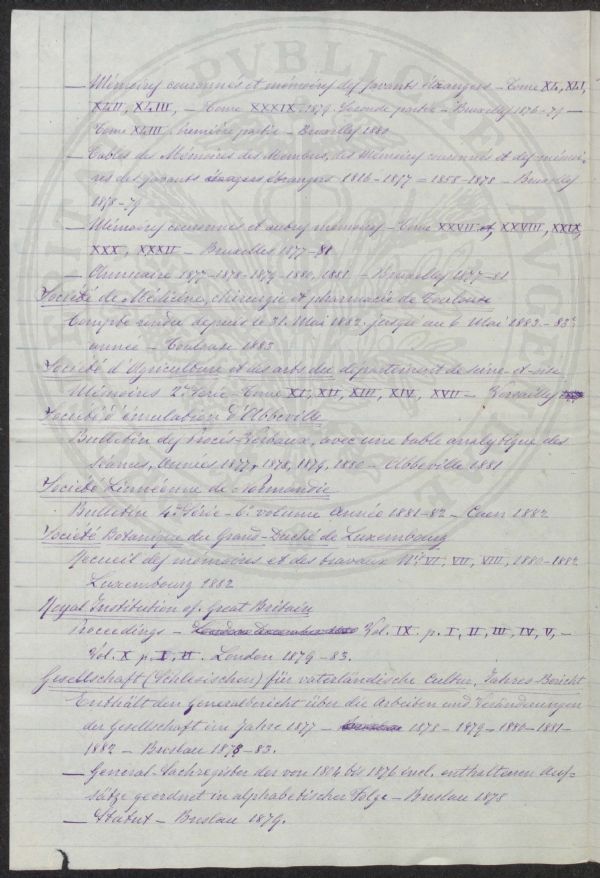 — Mémoires couronnés et mémoires des savants étrangers — Tome XL, XLI,
XLII, XLIII, — Tome XXXIX. 1879 Seconde partie — Bruxelles 1876-79 —
Tome XLIII première partie — Bruxelles 1880
— Tables des Mémoires des Membres, des Mémoires couronnés et des mémoi-
res des savants étrangers 1816-1857 = 1858-1878 — Bruxelles
1858-79
— Mémoires couronnés et autres mémoires — Tome XXVII et, XXVIII, XXIX,
XXX, XXXII — Bruxelles 1877-81
— Annuaire 1877-1878-1879-1880, 1881 — Bruxelles 1877-81
Société de Médecine, chirurgie et pharmacie de Toulouse
Compte rendu depuis le 31. Mai 1882. jusqu'au 6 Mai 1883. — 83e
année — Toulouse 1883
Société d'Agriculture et des arts du département de Seine-et-Oise
Mémoires 2e Série — Tome XI, XII, XIII, XIV, XVII — Versailles
Société d'émulation d'Abbeville
Bulletin des Procès-Verbaux, avec une table analytique des
séances, Années 1877, 1878, 1879, 1880 — Abbeville 1881
Société Linnéenne de Normandie
Bulletin 4e Série — 6e volume Année 1881-82 — Caen 1882
Société Botanique du Grand-Duché de Luxembourg
Recueil des mémoires et des travaux Nr. VI, VII, VIII, 1880-1882
Luxembourg 1882
Royal Institution of Great Britain
Proceedings — Vol. IX. p. I, II, III, IV, V, —
Vol. X p. I, II. London 1879-83.
Gesellschaft (Schlesischen) für vaterländische Cultur, Jahres-Bericht
Enthält den Generalbericht über die Arbeiten und Veränderungen
der Gesellschaft im Jahre 1877 — 1878 — 1879 — 1880 — 1881 —
1882 — Breslau 1878-83.
— General-Sachregister der von 1804 bis 1876 incl. enthaltenen Auf-
sätze geordnet in alphabetischer Folge — Breslau 1878
— Statut — Breslau 1879.